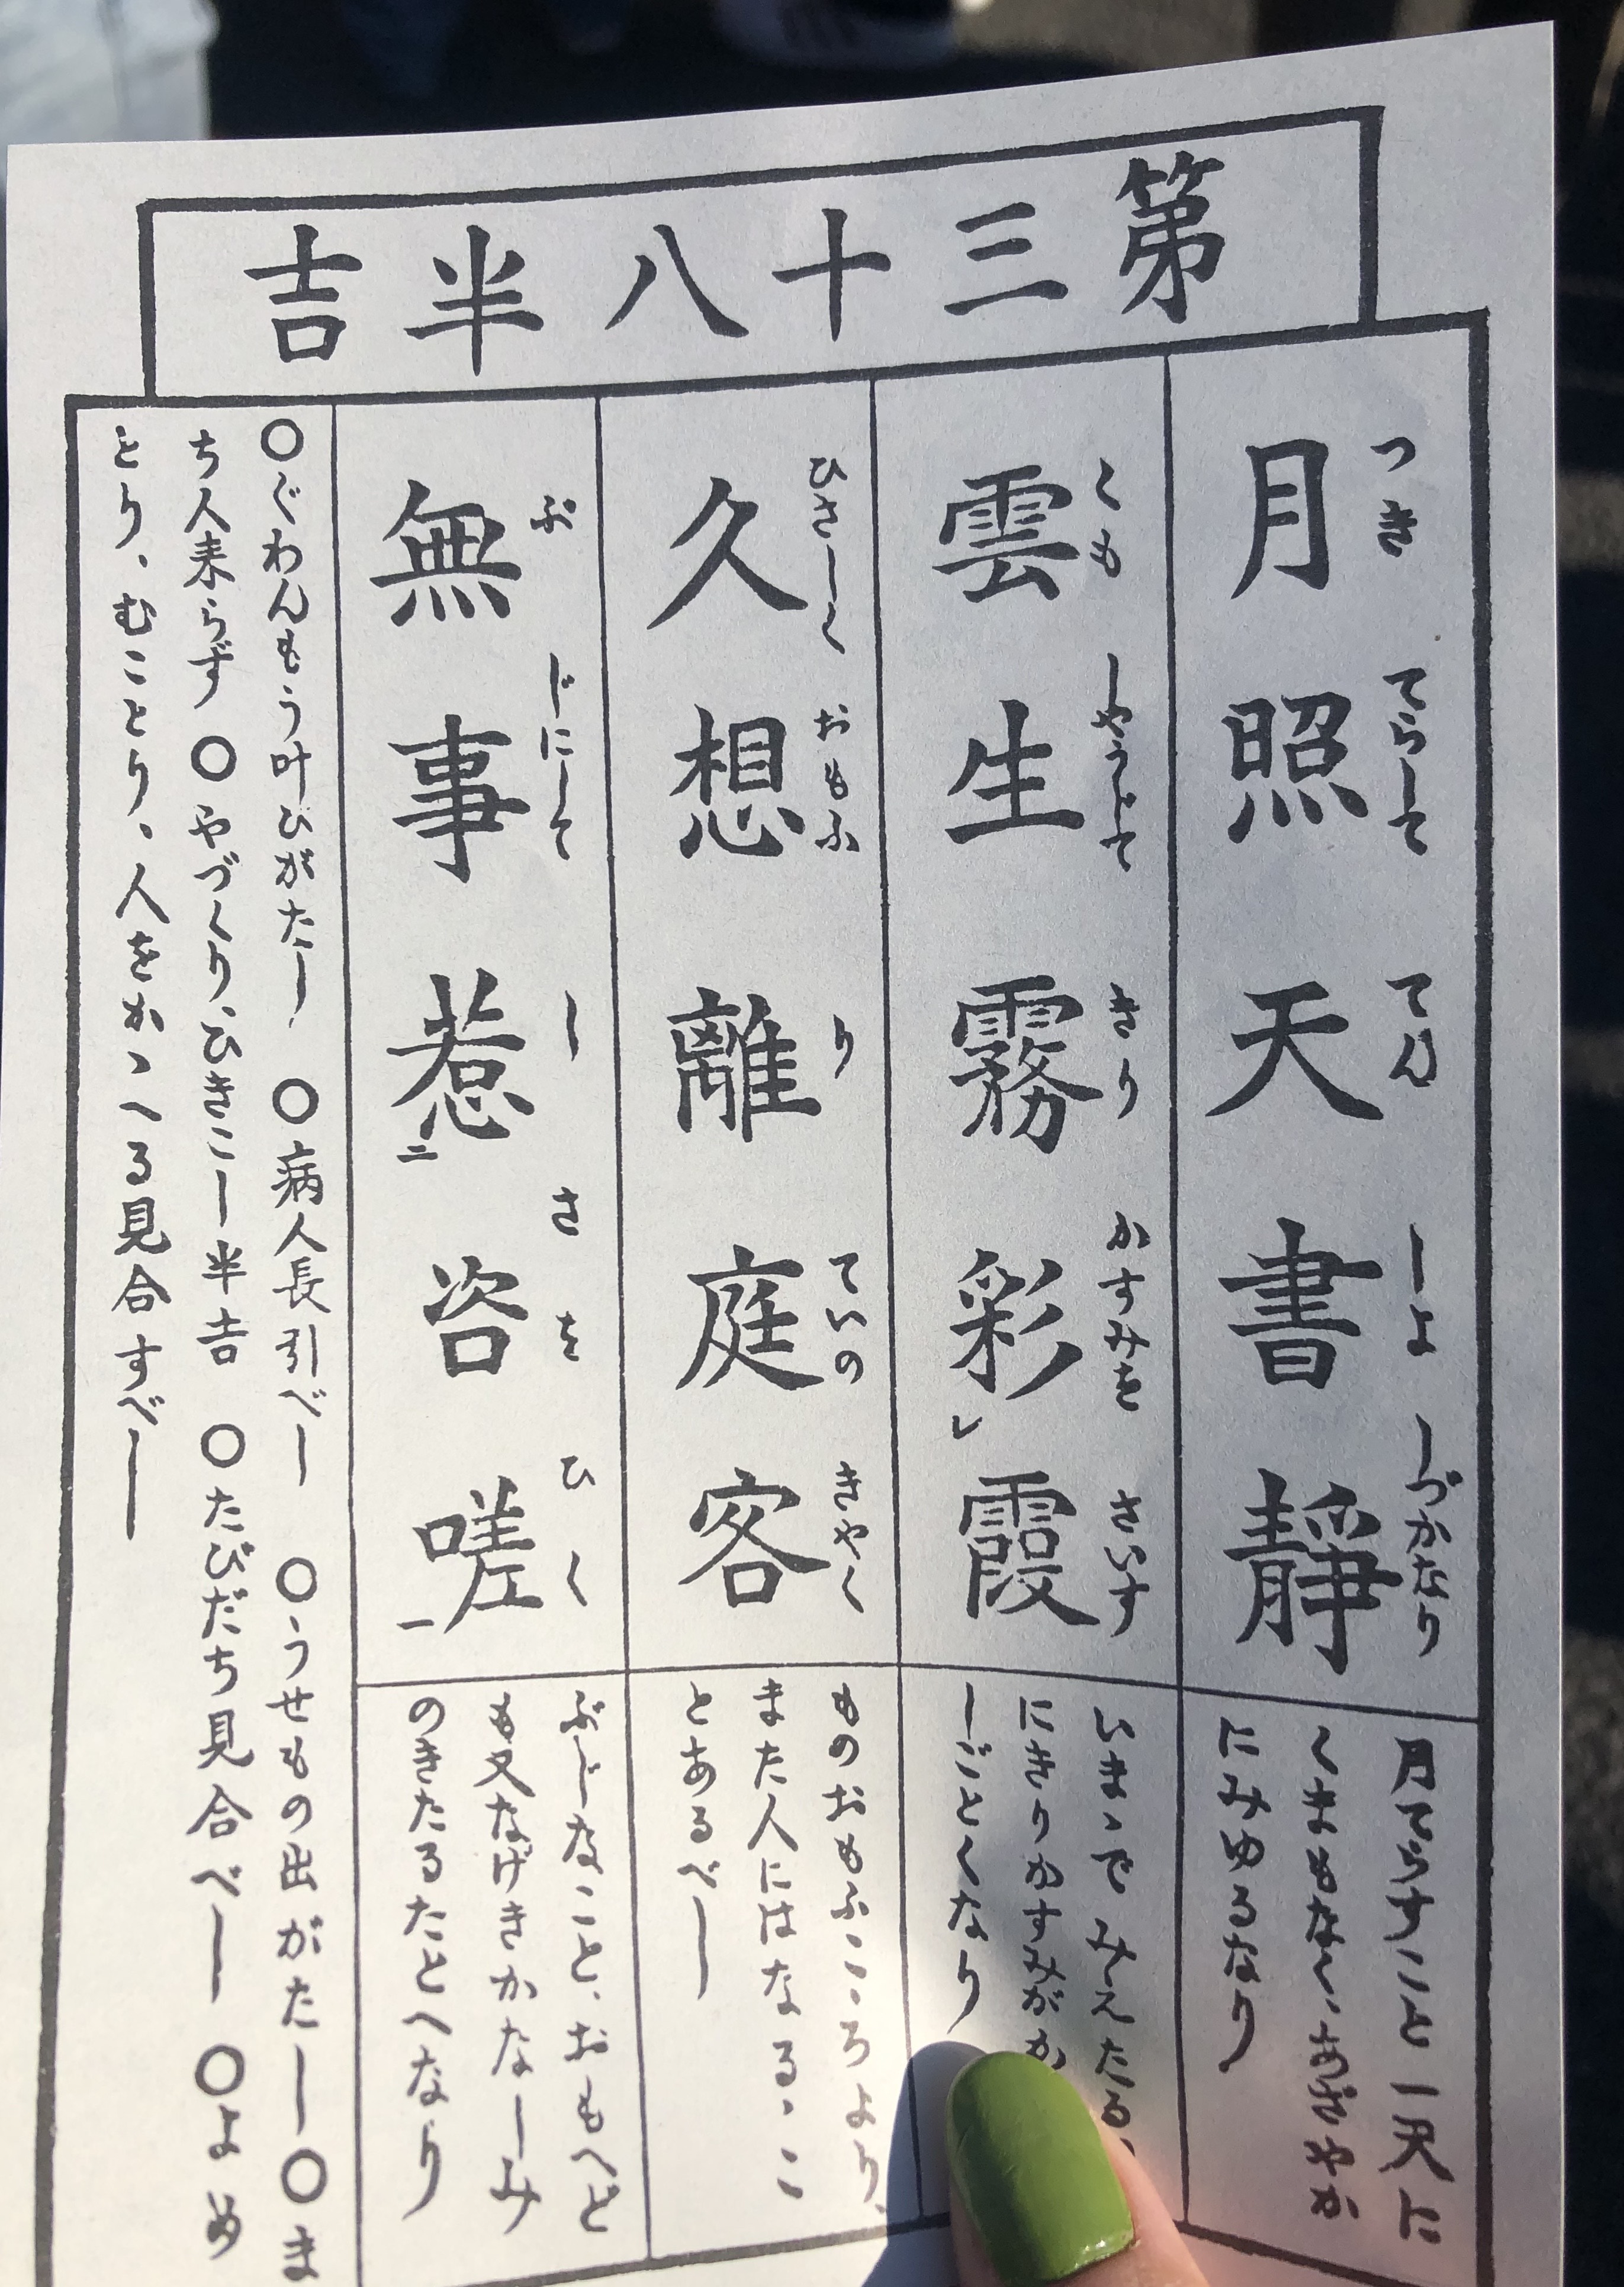 第三十八半吉
つき てらして てん しよ しづかなり
月照天書靜
くも しやうじて きり かすみを さいす
雲生霧彩レ霞
ひさしく おもふ り ていの きやく
久想離庭客
ぶ じにして し さ を ひ く
無事惹二咨嗟一
月てらすこと一天に
くまもなく、あざやか
にみゆるなり
みえたる、
にきりかすみがか
しごとくなり
ものおもふこころより、
また人にはなるゝこ
とあるべし
ぶじなこと、おもへど
も又なげきかなしみ
のきたるたとへなり
○ぐわんもう叶ひがたし、○病人長引べし ○うせもの出がたし○ま
ち人来らず○やづくり、ひきこし半吉 ○たびだち見合べし ○よめ
とり、むことり、人をかゝへる見合すべし